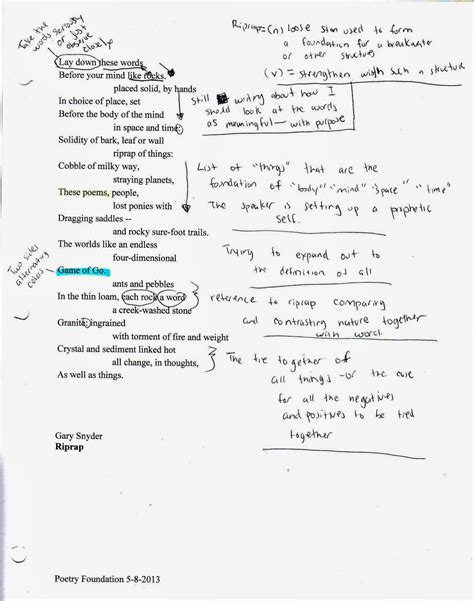 Riprap = (n) loose ston used to form
a foundation for a breakwater
or other structures
(v) = strengthen with such a structure
Take the
words seriously
or just
observe
closely
Lay down these words
Before your mind like rocks.
placed solid, by hands
In choice of place, set
Before the body of the mind
in space and time:
Solidity of bark, leaf or wall
riprap of things:
Cobble of milky way,
straying planets,
These poems, people,
lost ponies with
Dragging saddles --
and rocky sure-foot trails.
The worlds like an endless
four-dimensional
Game of Go.
ants and pebbles
In the thin loam, each rock a word
a creek-washed stone
Granite: ingrained
with torment of fire and weight
Crystal and sediment linked hot
all change, in thoughts,
As well as things.
Still writing about how I
should look at the words
as meaningful – with purpose
List of "things" that are the
foundation of "body" "mind" "space" "time"
The speaker is setting up a prophetic
self.
Trying to expand out to
the definition of all
Two sides
alternating
colors
reference to riprap comparing
and contrasting nature together
with word.
The tie together of
all things – or the
for all the negatives
and positives to be tied
together
Gary Snyder
Riprap
Poetry Foundation 5-8-2013